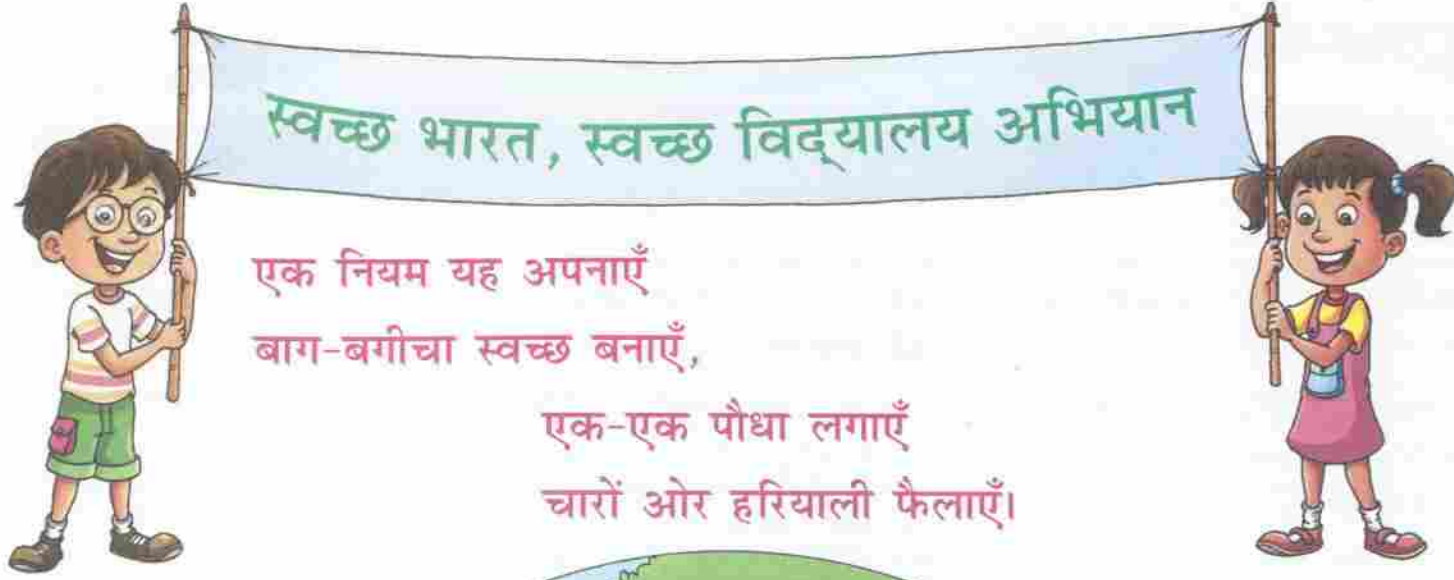 स्वच्छ भारत, स्वच्छ विद्‌यालय अभियान
एक नियम यह अपनाएँ
बाग-बगीचा स्वच्छ बनाएँ,
एक-एक पौधा लगाएँ
चारों ओर हरियाली फैलाएँ।